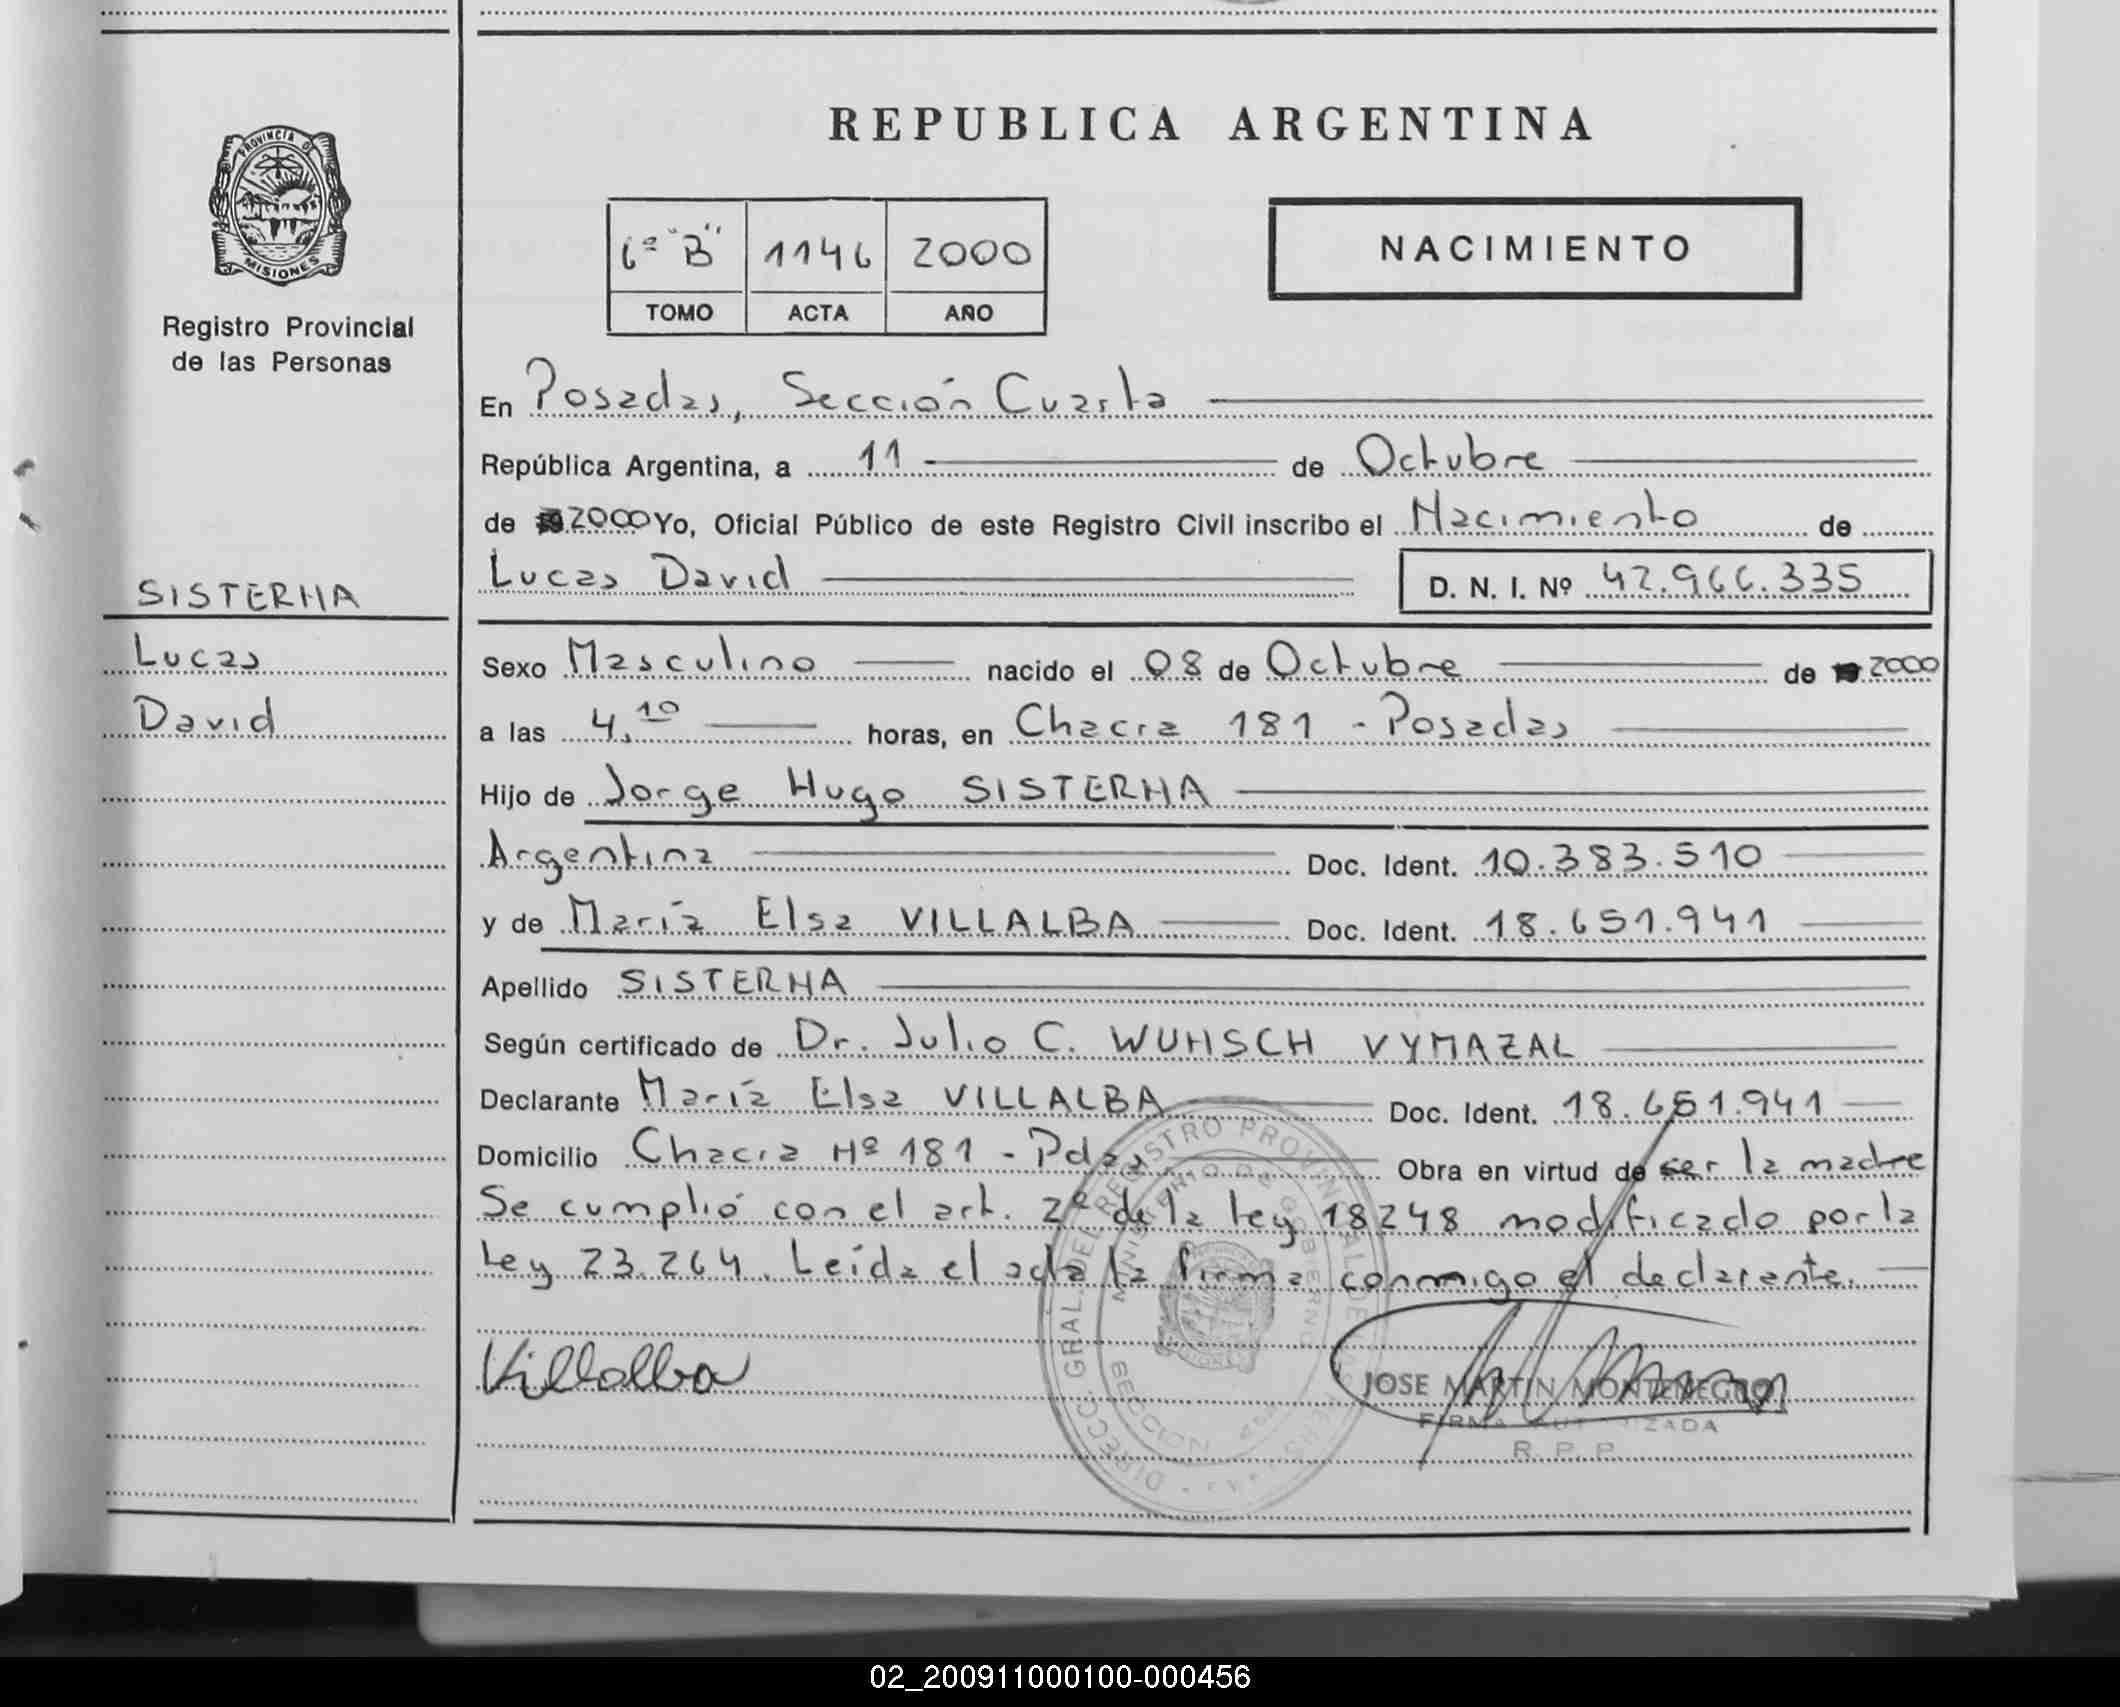 REPUBLICA ARGENTINA
PROVINCIA DE
MISIONES
Registro Provincial
de las Personas
6º "B" 1146 2000
TOMO ACTA AÑO
NACIMIENTO
En Posadas, Sección Cuarta
República Argentina, a 11 de Octubre
de 2000 Yo, Oficial Público de este Registro Civil inscribo el Nacimiento de
Lucas David D. N. I. Nº 42.966.335
SISTERNA
Lucas
David
Sexo Masculino nacido el 08 de Octubre de 2000
a las 4,10 horas, en Chacra 181 - Posadas
Hijo de Jorge Hugo SISTERNA
Argentina Doc. Ident. 10.383.510
y de María Elsa VILLALBA Doc. Ident. 18.651.941
Apellido SISTERNA
Según certificado de Dr. Julio C. WUNSCH VYMAZAL
Declarante María Elsa VILLALBA Doc. Ident. 18.651.941
Domicilio Chacra Nº 181 - Pdas Obra en virtud de ser la madre
Se cumplió con el art. 2º de la Ley 18248 modificado por la
Ley 23.264. Leída el acta la firma conmigo el declarante.
Villalba
DIRECC. GRAL. DEL REGISTRO PROVINCIAL DE LAS PERS
MINISTERIO DE GOBIERNO
SECCION
JOSE MARTIN MONTENEGRO
FIRMA AUTORIZADA
R. P. P.
02_200911000100-000456